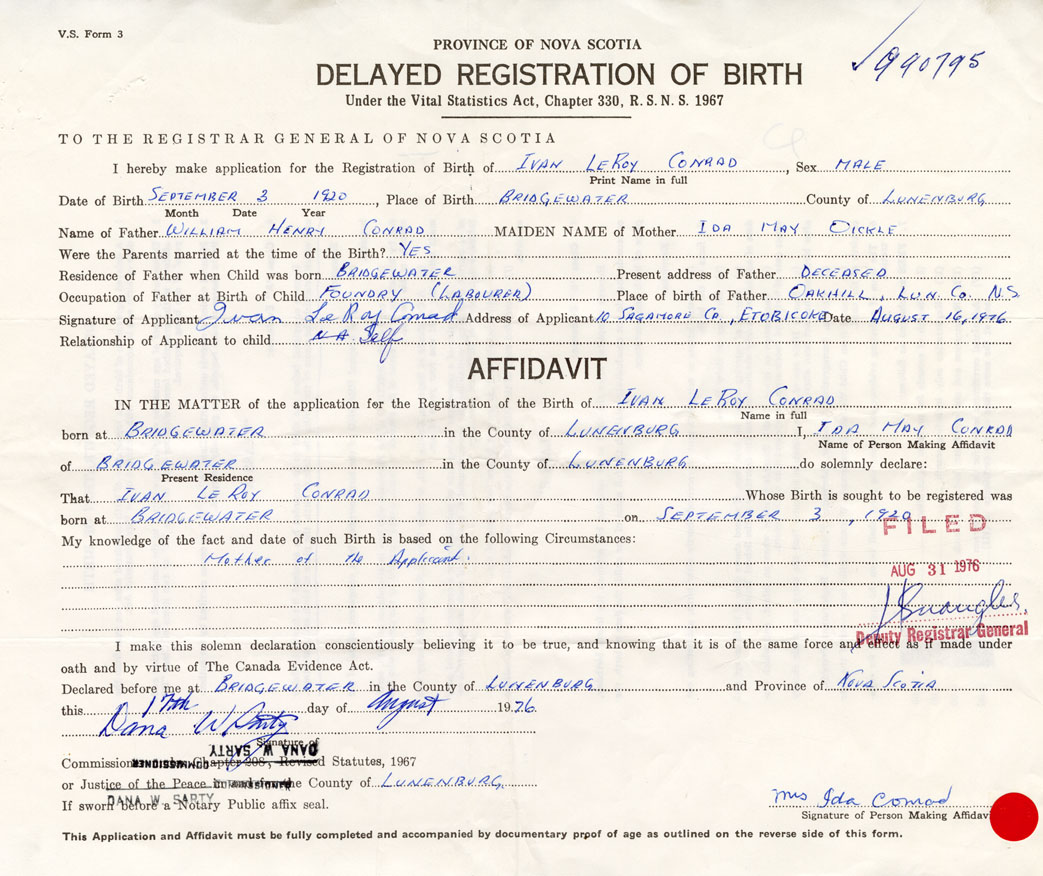 V.S. Form 3
990795
PROVINCE OF NOVA SCOTIA
DELAYED REGISTRATION OF BIRTH
Under the Vital Statistics Act, Chapter 330, R. S. N. S. 1967
TO THE REGISTRAR GENERAL OF NOVA SCOTIA
I hereby make application for the Registration of Birth of IVAN LEROY CONRAD, Sex MALE
Print Name in full
Date of Birth SEPTEMBER 3 1920, Place of Birth BRIDGEWATER County of LUNENBURG
Month Date Year
Name of Father WILLIAM HENRY CONRAD MAIDEN NAME of Mother IDA MAY OICKLE
Were the Parents married at the time of the Birth? YES
Residence of Father when Child was born BRIDGEWATER Present address of Father DECEASED
Occupation of Father at Birth of Child FOUNDRY (LABOURER) Place of birth of Father OAKHILL, LUN. CO. N.S.
Signature of Applicant Ivan LeRoy Conrad Address of Applicant 10 SAGAMORE CO., ETOBICOKE Date AUGUST 16, 1976
Relationship of Applicant to child N A Self
AFFIDAVIT
IN THE MATTER of the application for the Registration of the Birth of IVAN LEROY CONRAD
Name in full
born at BRIDGEWATER in the County of LUNENBURG I, IDA MAY CONRAD
Name of Person Making Affidavit
of BRIDGEWATER in the County of LUNENBURG do solemnly declare:
Present Residence
That IVAN LE ROY CONRAD Whose Birth is sought to be registered was
born at BRIDGEWATER on SEPTEMBER 3, 1920
FILED
My knowledge of the fact and date of such Birth is based on the following Circumstances:
Mother of the Applicant.
AUG 31 1976
Deputy Registrar General
I make this solemn declaration conscientiously believing it to be true, and knowing that it is of the same force and effect as if made under
oath and by virtue of The Canada Evidence Act.
Declared before me at BRIDGEWATER in the County of LUNENBURG and Province of NOVA SCOTIA
this 17th day of August 1976.
Dana W Sarty
Signature of
DANA W. SARTY
COMMISSIONER
Commissioner Chapter 208, Revised Statutes, 1967
or Justice of the Peace in and for the County of LUNENBURG
DANA W. SARTY
If sworn before a Notary Public affix seal.
Mrs Ida Conrad
Signature of Person Making Affidavi
This Application and Affidavit must be fully completed and accompanied by documentary proof of age as outlined on the reverse side of this form.